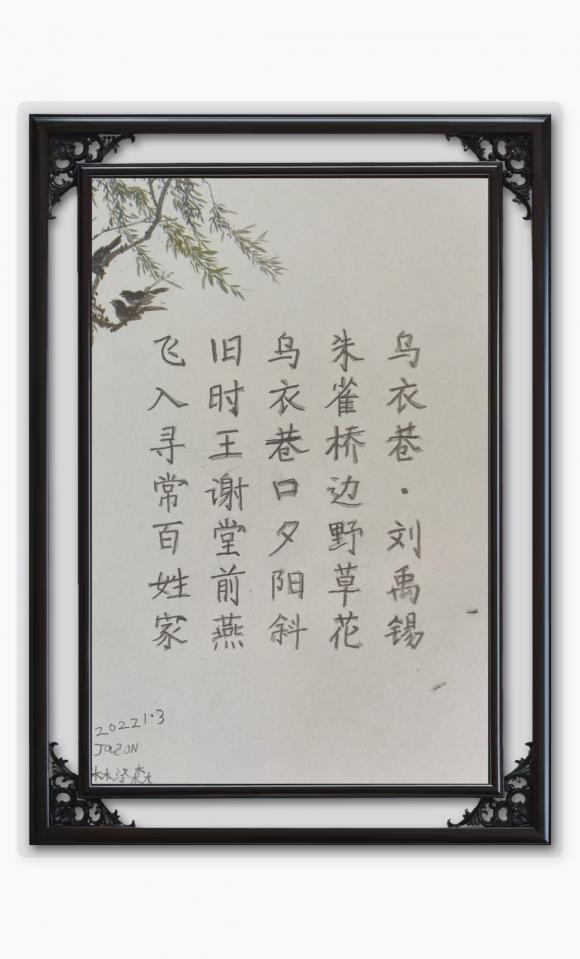 乌衣巷·刘禹锡
朱雀桥边野草花
乌衣巷口夕阳斜
旧时王谢堂前燕
飞入寻常百姓家
2022 1·3